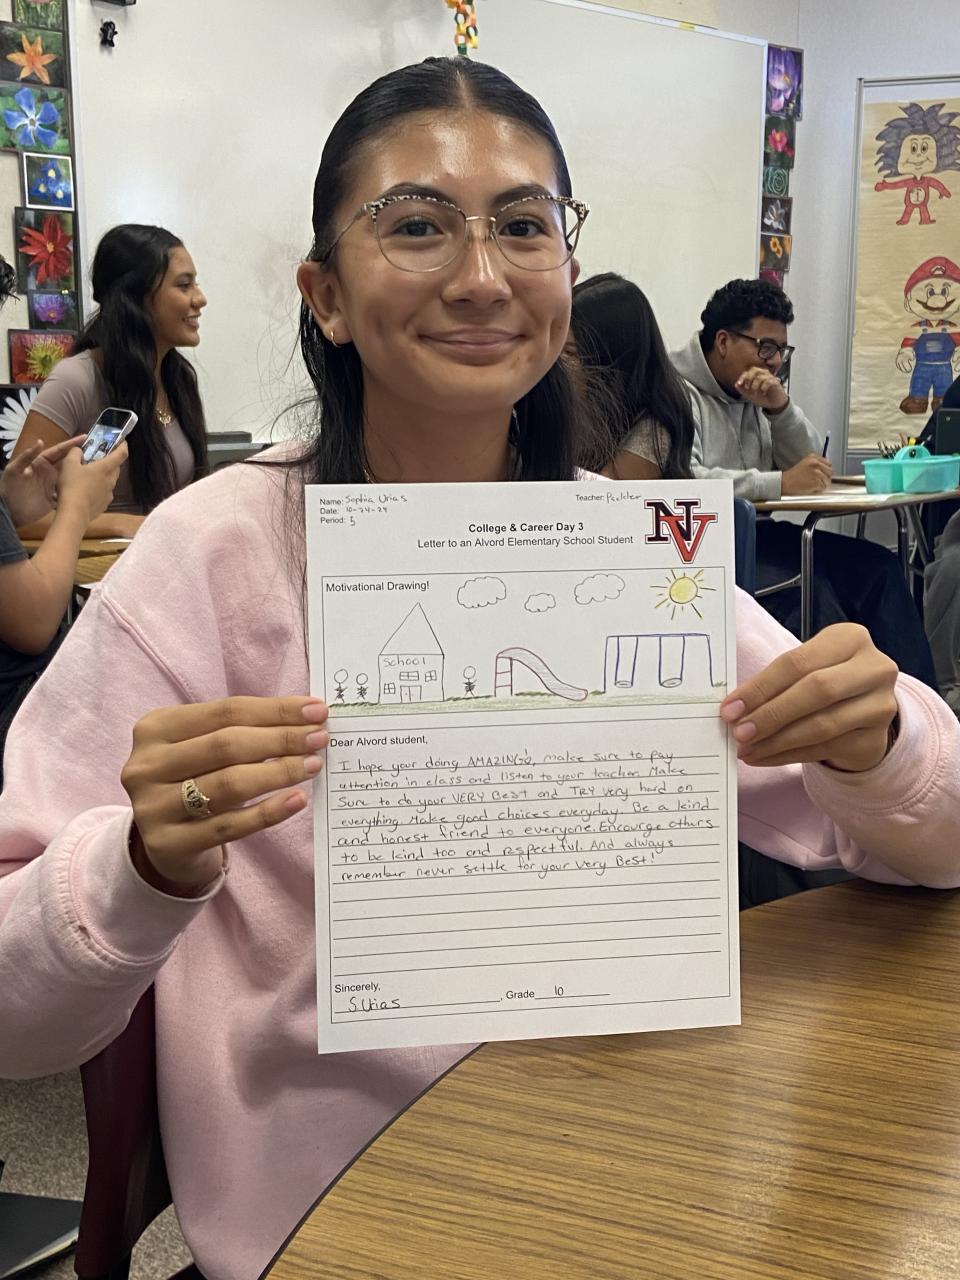 Name: Sophia Urias
Teacher:
Date: 10-24-24
Period: 5
NV
College & Career Day 3
Letter to an Alvord Elementary School Student
Motivational Drawing!
School
Dear Alvord student,
I hope your doing AMAZING!, make sure to pay
attention in class and listen to your teacher. Make
Sure to do your VERY BEST and TRY very hard on
everything. Make good choices everyday. Be a kind
and honest friend to everyone. Encourge others
to be kind too and respectful. And always
remember never settle for your very Best!
Sincerely,
S.Urias, Grade 10